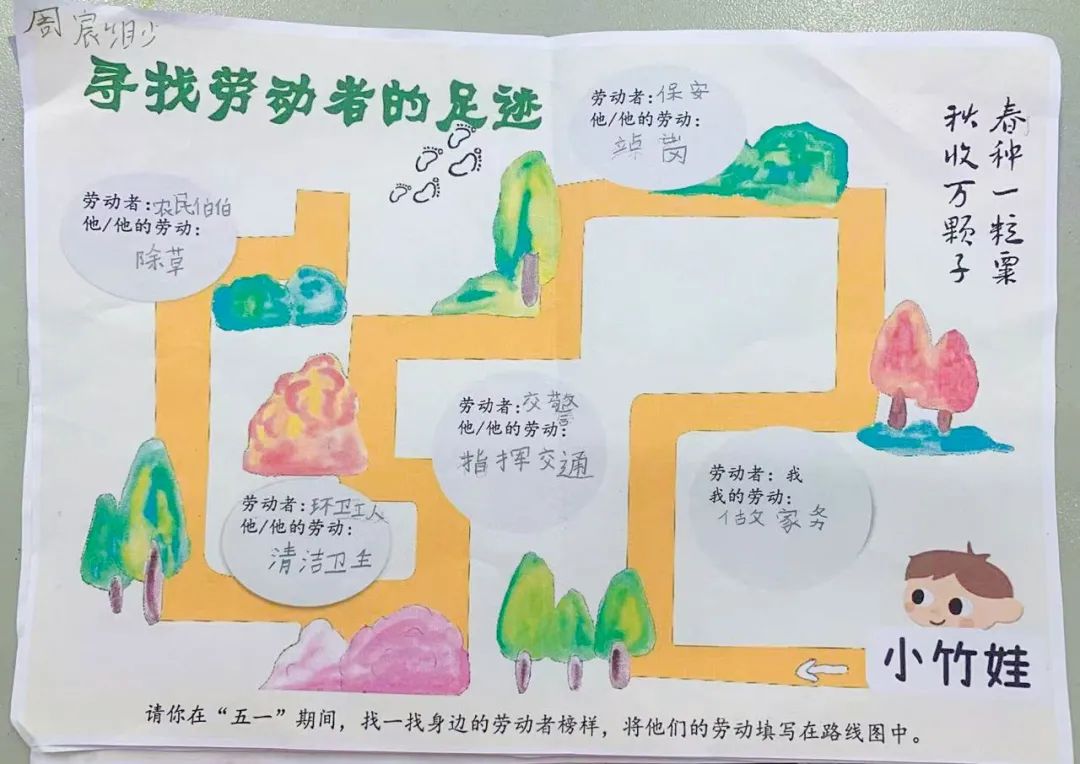 周宸
寻找劳动者的足迹
劳动者:保安
他/他的劳动:
站岗
春种一粒粟
秋收万颗子
劳动者:农民伯伯
他/他的劳动:
除草
劳动者:交警
他/他的劳动:
指挥交通
劳动者:我
我的劳动:
做家务
劳动者:环卫工人
他/他的劳动:
清洁卫生
小竹娃
请你在“五一”期间，找一找身边的劳动者榜样，将他们的劳动填写在路线图中。